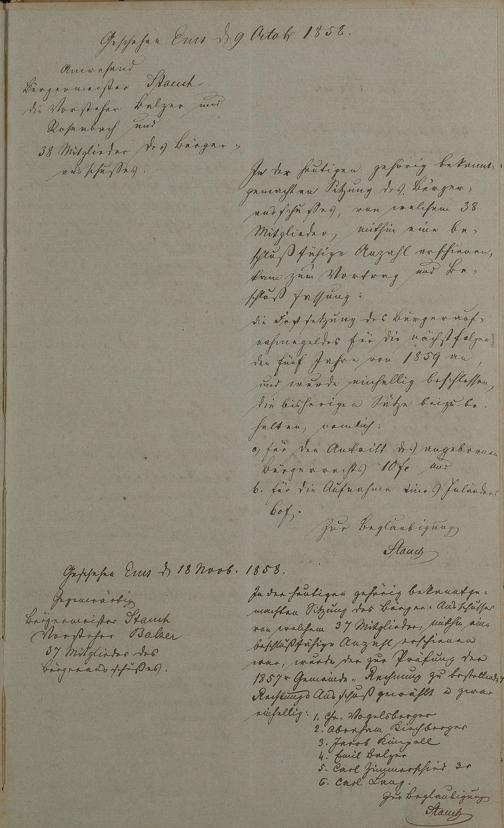 Geschehen Ems d. 9 Octobr 1858.
Anwesend
Bürgermeister Stamh
die Vorsteher Balzer und
Rosenbach und
38 Mitglieder des Bürger-
ausschusses.
In der heutigen gehörig bekannt
gemachten Sitzung des Bürger-
ausschußes, von welchem 38
Mitglieder, mithin eine be-
schlußfähige Anzahl erschienen,
kam zum Vortrag und Be-
schlußfassung:
die Festsetzung des Bürgerauf-
nahmegeldes für die nächstfolgen
den fünf Jahre von 1859 an,
und wurde einhellig beschlossen,
die bisherigen Sätze beizube-
halten, nemlich:
a, für den Antritt des angebornen
Bürgerrechts 10 f. und
b. für die Aufnahme eines Inländers
60 f.
Zur Beglaubigung
Geschehen Ems d. 18 Novb. 1858.
Gegenwärtig
Bürgermeister Stamh
Vorsteher Balzer
37 Mitglieder des
Bürgerausschußes.
In der heutigen gehörig bekanntge-
machten Sitzung des Bürger-Ausschusses
von welchem 37 Mitglieder, mithin eine
beschlußfähige Anzahl erschienen
war, wurde der zur Prüfung der
1857r Gemeinde-Rechnung zu bestellende
Rechnungs Ausschuß gewählt u zwar
einhellig: 1. Chr. Vogelsberger
2. Abraham Kirchberger
3. Jacob
4. Emil Balzer
5. Carl Zimmerschied
6. Carl Lang.
Zur Beglaubigung